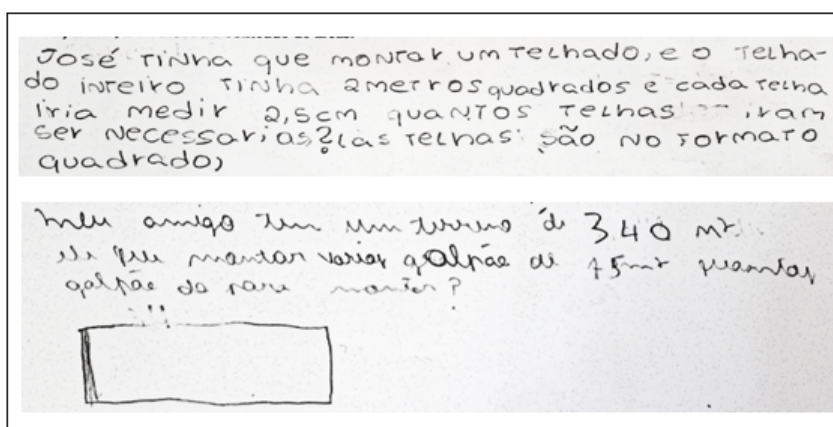 José tinha que montar um telhado, e o telha-
do inteiro tinha 2 metros quadrados e cada telha
iria medir 2,5cm quantos telhas iram
ser necessarias? (as telhas são no formato
quadrado)
meu amigo tem um terreno de 340 m²
ele quer montar varios galpão de 75m² quantos
galpão da para montar?